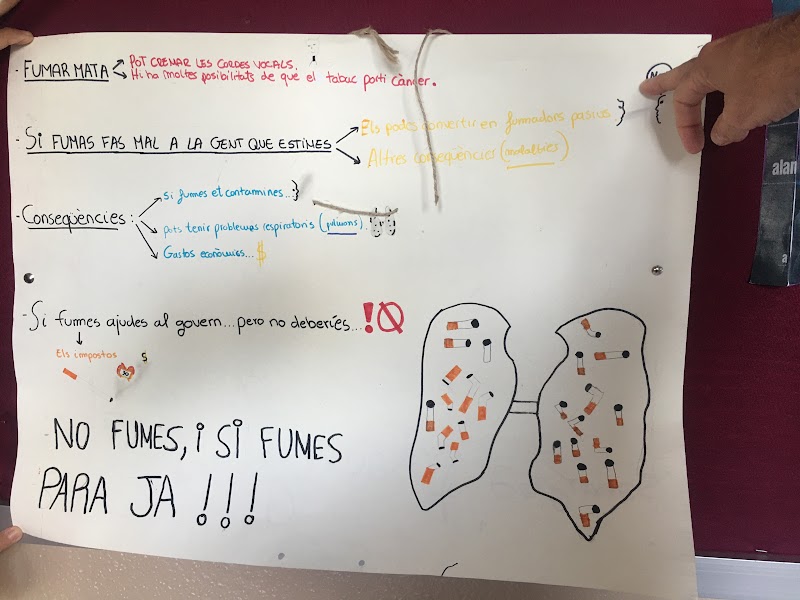 - FUMAR MATA
POT CREMAR LES CORDES VOCALS.
Hi ha moltes posibilitats de que el tabac porti Càncer.
- SI FUMAS FAS MAL A LA GENT QUE ESTIMES
Els podes convertir en fomadors pasius.
Altres conseqüències (malalties)
- Conseqüències:
si fumes et contamines...
pots tenir problemas respiratoris (pulmons).
Gastos econòmics... $
- Si fumes ajudes al govern... pero no deberíes... !
Els impostos
$
- NO FUMES, i SI FUMES
PARA JA !!!
alan
a